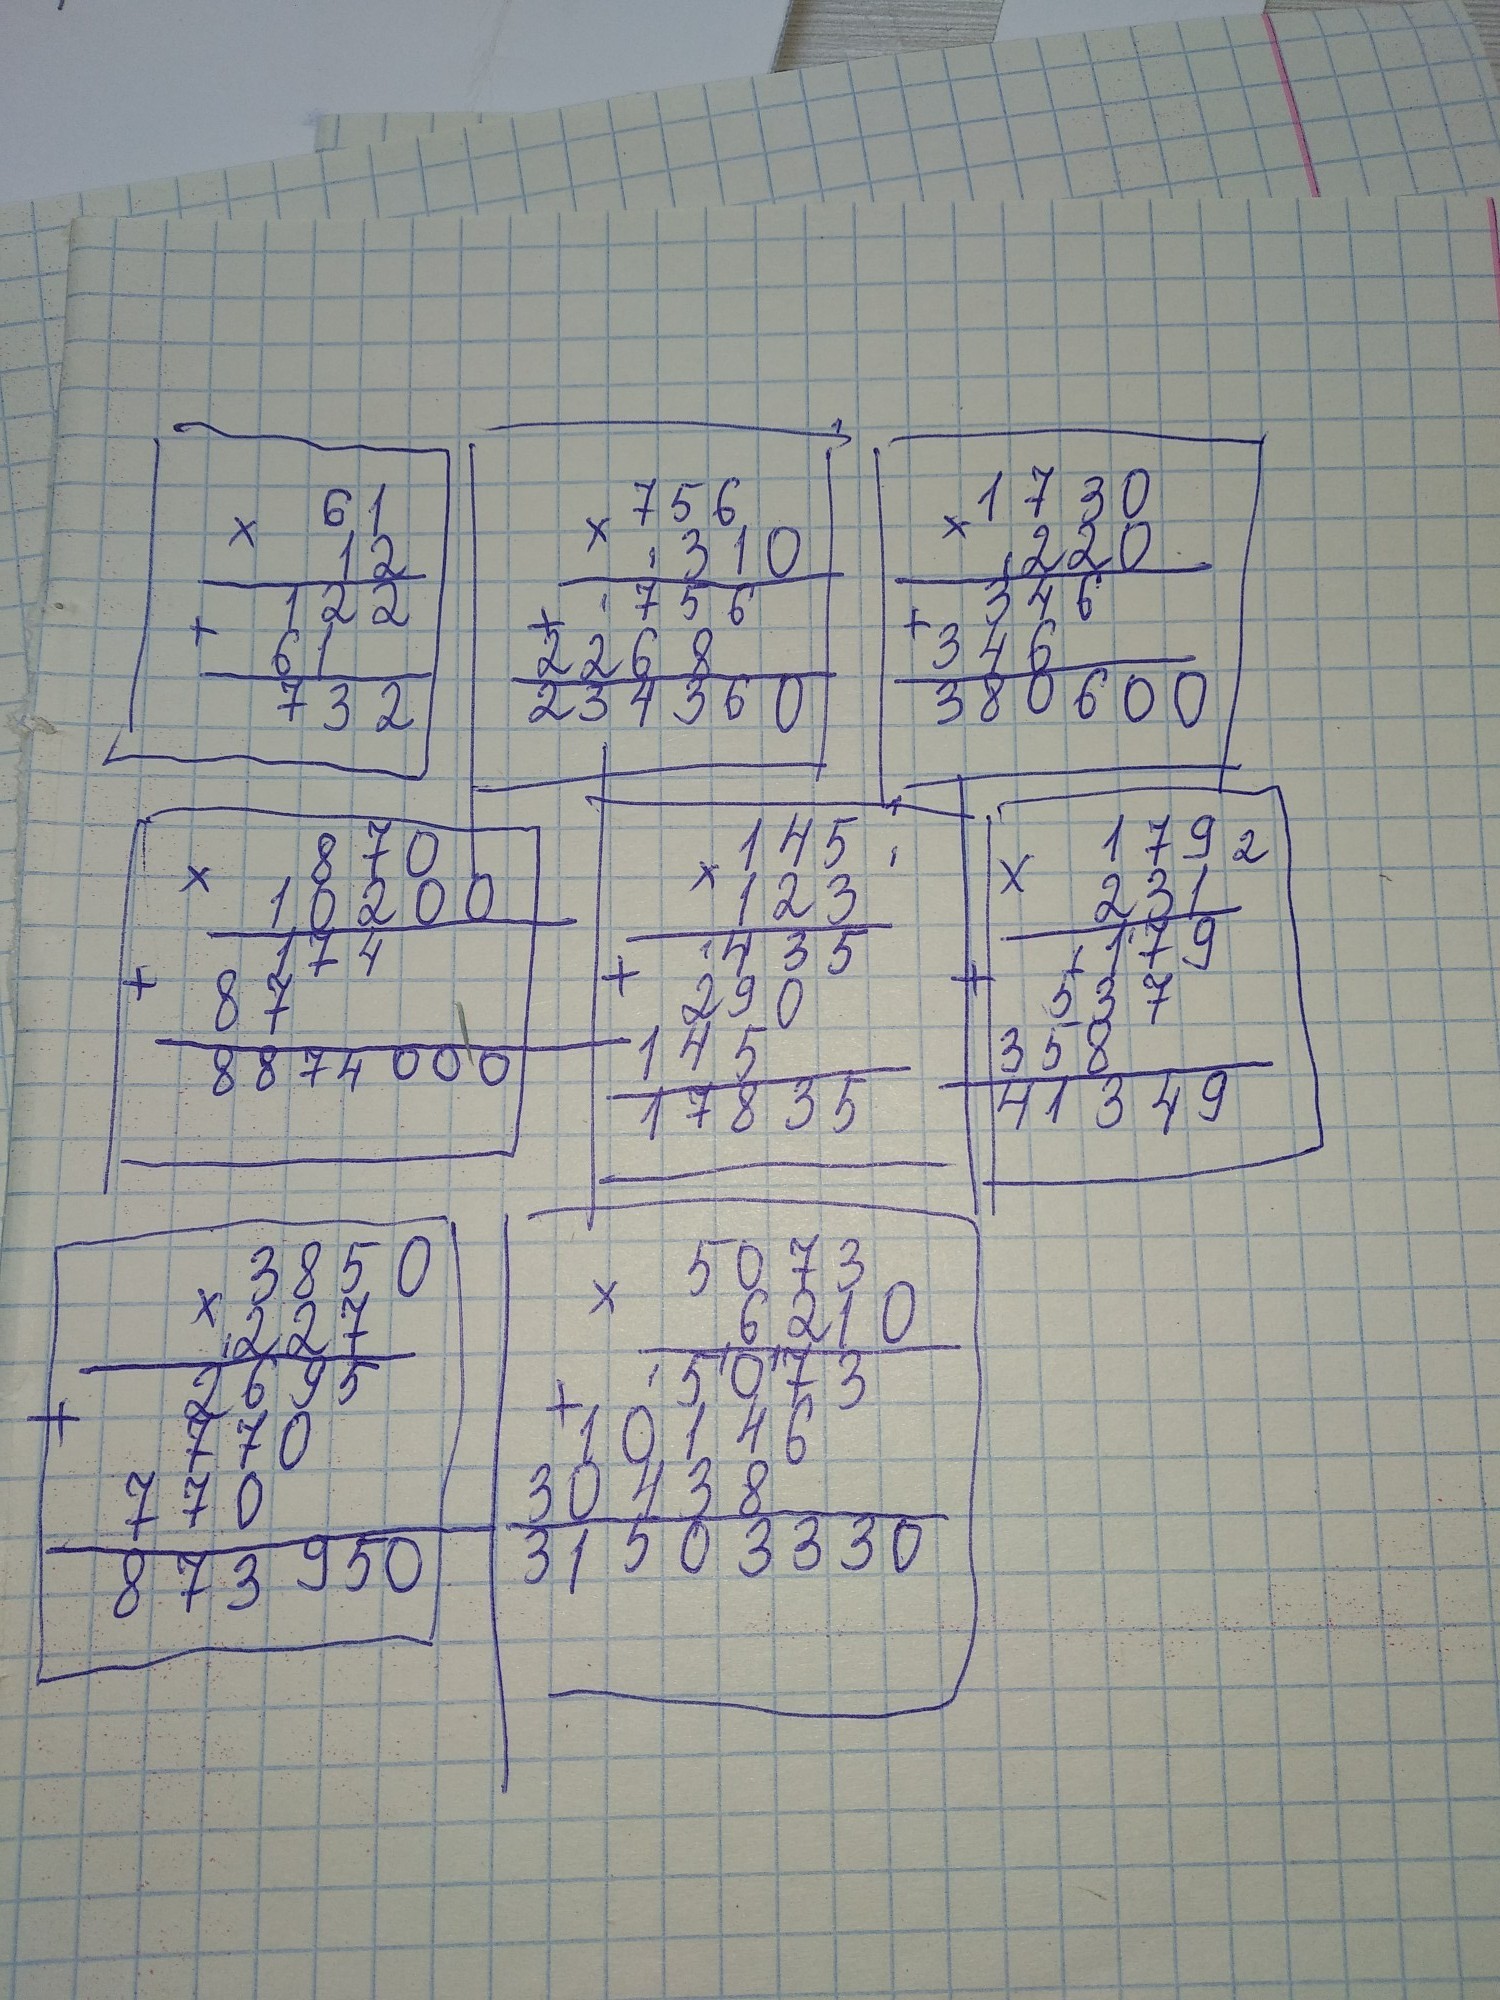 61
× 12
122
+ 61
732
756
× 310
756
+ 2268
234360
1730
× 220
346
+ 346
380600
870
× 10200
174
+ 87
8874000
145
× 123
435
+ 290
145
17835
1792
× 231
179
+ 537
358
41349
3850
× 227
2695
+ 770
770
873950
5073
× 6210
5073
+ 10146
30438
31503330